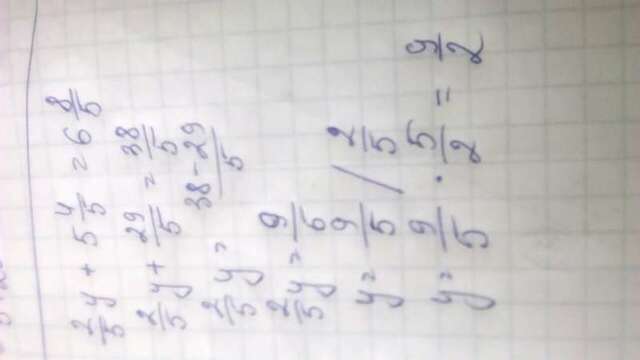 2/5 y + 5 4/5 = 6 8/5
2/5 y + 29/5 = 38/5
2/5 y = 38-29/5
2/5 y = 9/5
y = 9/5 / 2/5
y = 9/5 · 5/2 = 9/2